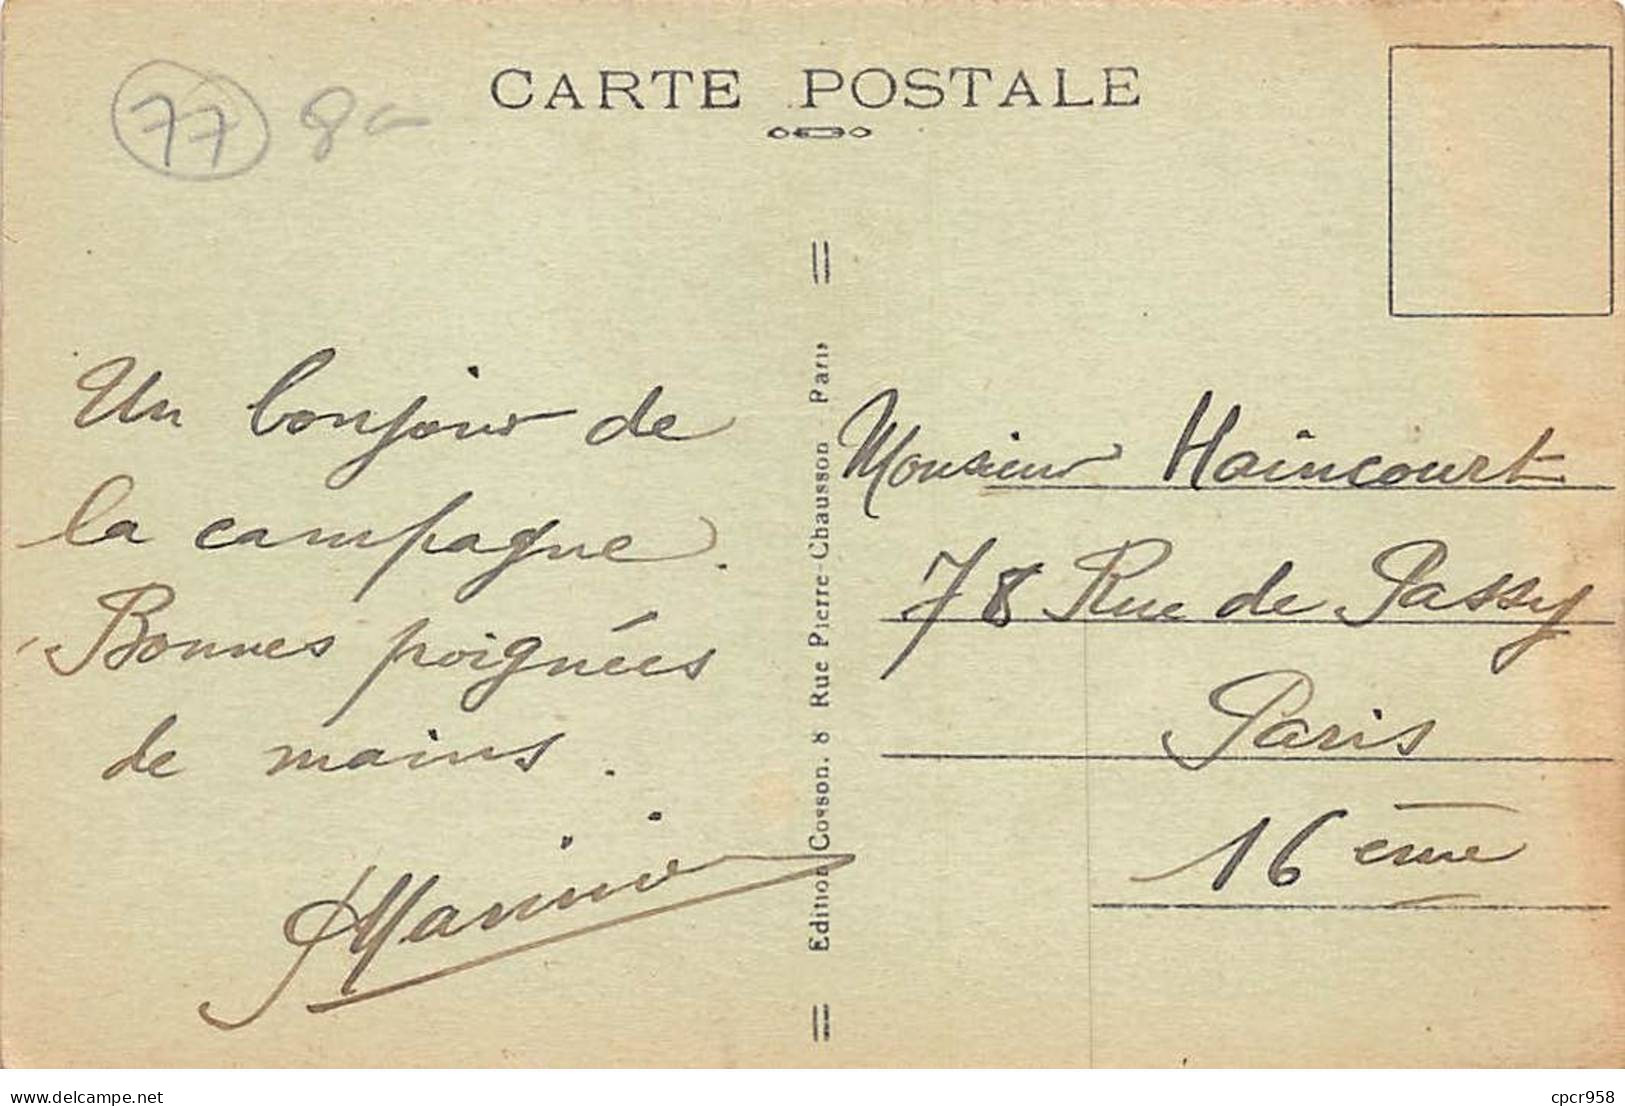 CARTE POSTALE
77 8-
Un bonjour de
la campagne.
Bonnes poignées
de mains.
Edition Cosson. 8 Rue Pierre-Chausson - Paris
Monsieur Haincourt
78 Rue de Passy
Paris
16 ème
www.delcampe.net
cpcr958